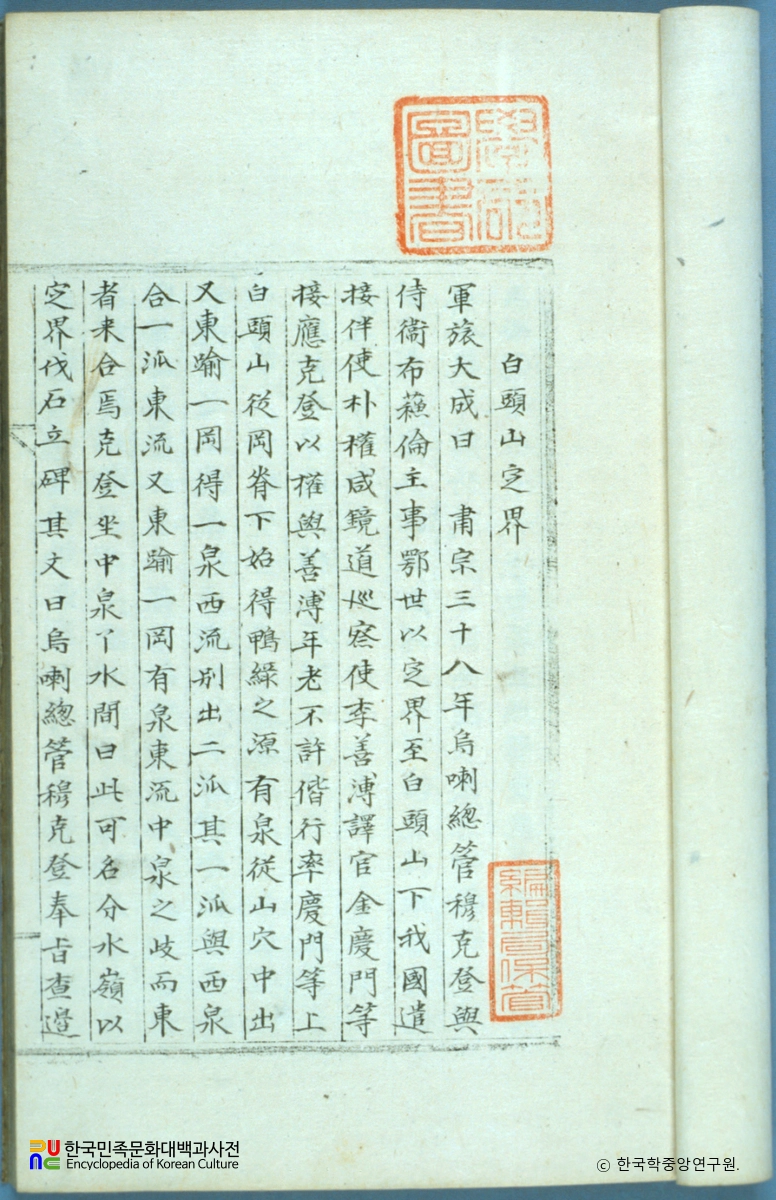 學部圖書
白頭山㝎界
軍旅大成曰 肅宗三十八年烏喇總管穆克登與
侍衛布蘓倫主事鄂世以㝎界至白頭山下我國遣
接伴使朴權咸鏡道巡察使李善溥譯官金慶門等
接應克登以權與善溥年老不許偕行率慶門等上
白頭山從岡脊下始得鴨綠之源有泉從山穴中出
又東踰一岡得一泉西流別出二泒其一泒與西泉
合一泒東流又東踰一岡有泉東流中泉之歧而東
者来合焉克登坐中泉丫水間曰此可名分水嶺以
㝎界伐石立碑其文曰烏喇總管穆克登奉旨查邊
編輯局保管
한국민족문화대백과사전
Encyclopedia of Korean Culture
ⓒ 한국학중앙연구원.